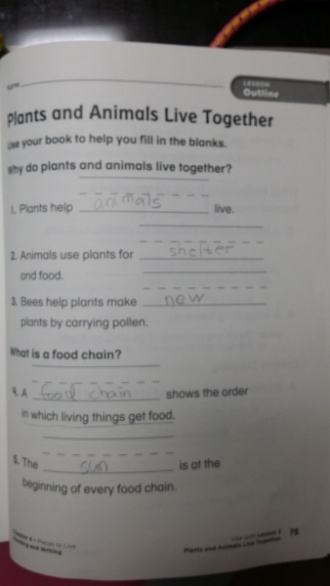 Name
LESSON
Outline
Plants and Animals Live Together
Use your book to help you fill in the blanks.
Why do plants and animals live together?
1. Plants help animals live.
2. Animals use plants for shelter
and food.
3. Bees help plants make new
plants by carrying pollen.
What is a food chain?
4. A food chain shows the order
in which living things get food.
5. The sun is at the
beginning of every food chain.
Chapter 4 • Places to Live
Reading and Writing
Use with Lesson
Plants and Animals Live Together
75